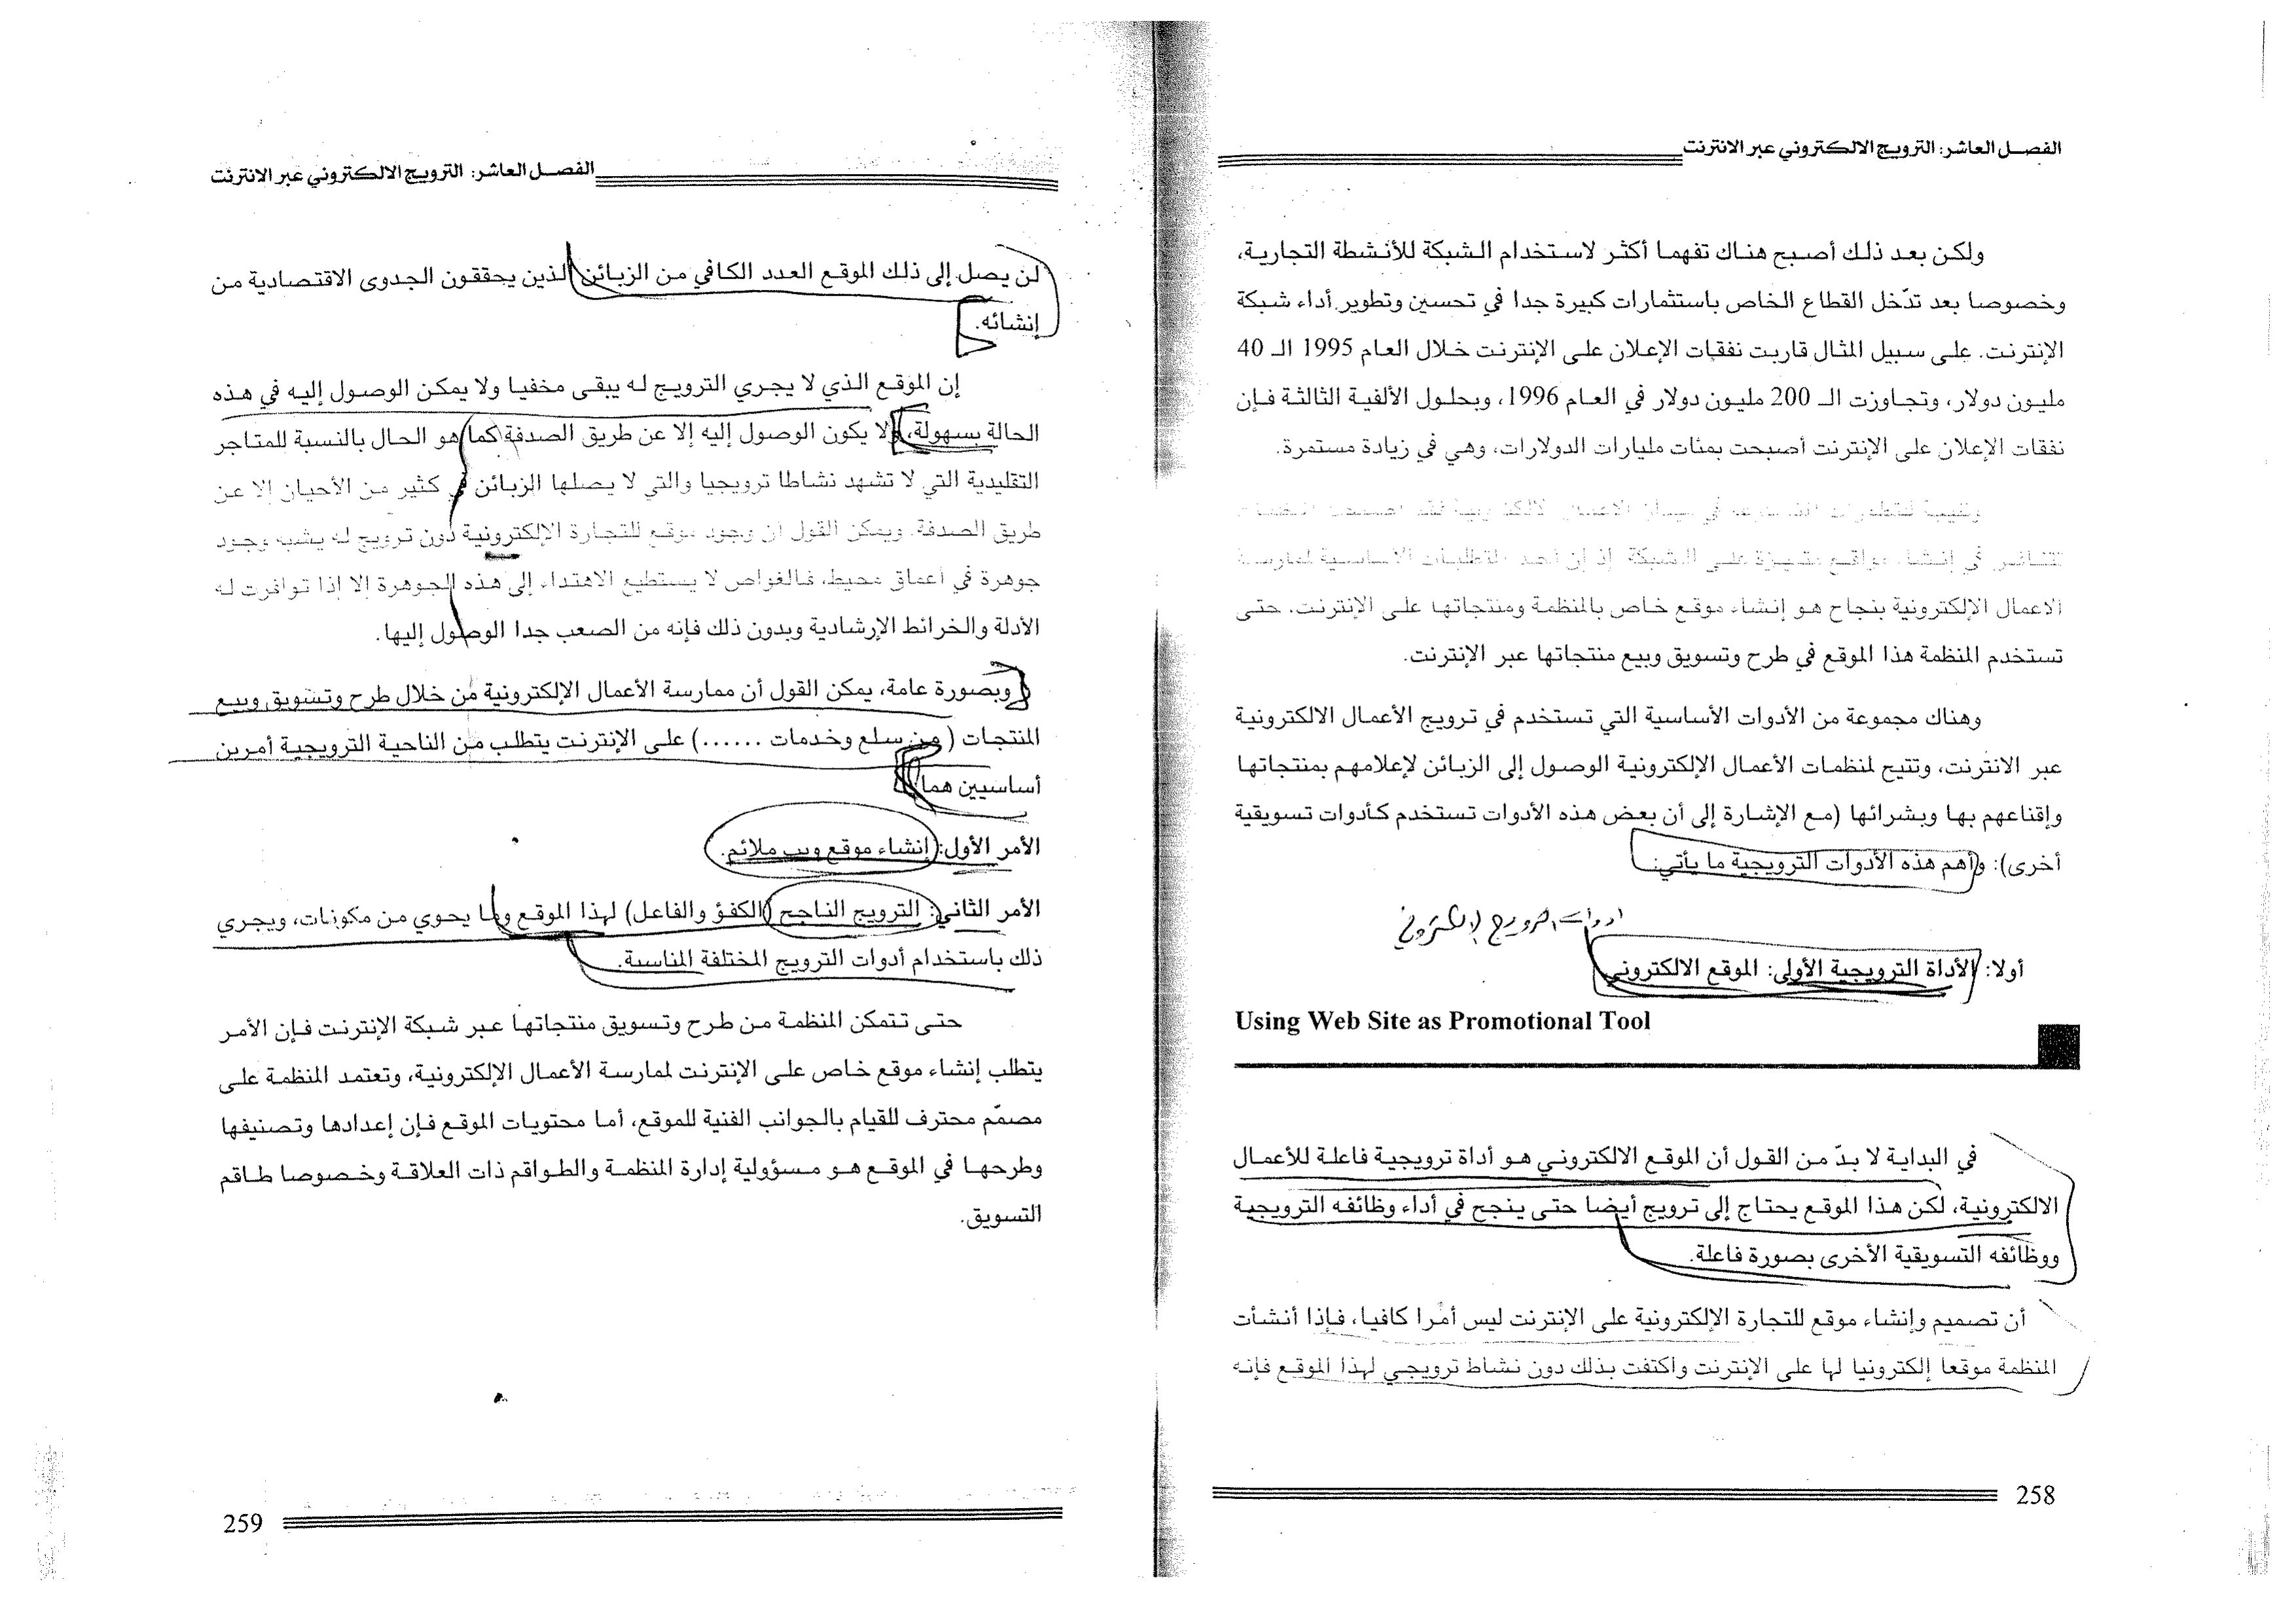 الفصل العاشر: الترويج الالكتروني عبر الانترنت
ولكن بعد ذلك أصبح هناك تفهما أكثر لاستخدام الشبكة للأنشطة التجارية،
وخصوصا بعد تدّخل القطاع الخاص باستثمارات كبيرة جدا في تحسين وتطوير أداء شبكة
الإنترنت. على سبيل المثال قاربت نفقات الإعلان على الإنترنت خلال العام 1995 الـ 40
مليون دولار، وتجاوزت الـ 200 مليون دولار في العام 1996، وبحلول الألفية الثالثة فإن
نفقات الإعلان على الإنترنت أصبحت بمئات مليارات الدولارات، وهي في زيادة مستمرة.
ونتيجة للتطورات في ميدان الاعمال الالكترونية فقد اصبحت المنظمات
تتنافس في إنشاء مواقع متميزة على الشبكة إذ إن أحد المتطلبات الأساسية لممارسة
الاعمال الإلكترونية بنجاح هو إنشاء موقع خاص بالمنظمة ومنتجاتها على الإنترنت. حتى
تستخدم المنظمة هذا الموقع في طرح وتسويق وبيع منتجاتها عبر الإنترنت.
وهناك مجموعة من الأدوات الأساسية التي تستخدم في ترويج الأعمال الالكترونية
عبر الانترنت، وتتيح لمنظمات الأعمال الإلكترونية الوصول إلى الزبائن لإعلامهم بمنتجاتها
وإقناعهم بها وبشرائها (مع الإشارة إلى أن بعض هذه الأدوات تستخدم كأدوات تسويقية
أخرى): وأهم هذه الأدوات الترويجية ما يأتي:
ادوات الترويج الالكتروني
أولا: الأداة الترويجية الأولى: الموقع الالكتروني
Using Web Site as Promotional Tool
في البداية لا بدّ من القول أن الموقع الالكتروني هو أداة ترويجية فاعلة للأعمال
الالكترونية، لكن هذا الموقع يحتاج إلى ترويج أيضا حتى ينجح في أداء وظائفه الترويجية
ووظائفه التسويقية الأخرى بصورة فاعلة.
أن تصميم وإنشاء موقع للتجارة الإلكترونية على الإنترنت ليس أمرا كافيا، فإذا أنشأت
المنظمة موقعا إلكترونيا لها على الإنترنت واكتفت بذلك دون نشاط ترويجي لهذا الموقع فإنه
258
الفصل العاشر: الترويج الالكتروني عبر الانترنت
لن يصل إلى ذلك الموقع العدد الكافي من الزبائن الذين يحققون الجدوى الاقتصادية من
إنشائه.
إن الموقع الذي لا يجري الترويج له يبقى مخفيا ولا يمكن الوصول إليه في هذه
الحالة بسهولة، ولا يكون الوصول إليه إلا عن طريق الصدفة كما هو الحال بالنسبة للمتاجر
التقليدية التي لا تشهد نشاطا ترويجيا والتي لا يصلها الزبائن في كثير من الأحيان إلا عن
طريق الصدفة. ويمكن القول أن وجود موقع للتجارة الإلكترونية دون ترويج له يشبه وجود
جوهرة في أعماق محيط، فالغواص لا يستطيع الاهتداء إلى هذه الجوهرة إلا إذا توافرت له
الأدلة والخرائط الإرشادية وبدون ذلك فإنه من الصعب جدا الوصول إليها.
وبصورة عامة، يمكن القول أن ممارسة الأعمال الإلكترونية من خلال طرح وتسويق وبيع
المنتجات (من سلع وخدمات ......) على الإنترنت يتطلب من الناحية الترويجية أمرين
أساسيين هما:
الأمر الأول: إنشاء موقع ويب ملائم.
الأمر الثاني: الترويج الناجح (الكفؤ والفاعل) لهذا الموقع وما يحوي من مكونات، ويجري
ذلك باستخدام أدوات الترويج المختلفة المناسبة.
حتى تتمكن المنظمة من طرح وتسويق منتجاتها عبر شبكة الإنترنت فإن الأمر
يتطلب إنشاء موقع خاص على الإنترنت لممارسة الأعمال الإلكترونية، وتعتمد المنظمة على
مصمّم محترف للقيام بالجوانب الفنية للموقع، أما محتويات الموقع فإن إعدادها وتصنيفها
وطرحها في الموقع هو مسؤولية إدارة المنظمة والطواقم ذات العلاقة وخصوصا طاقم
التسويق.
259